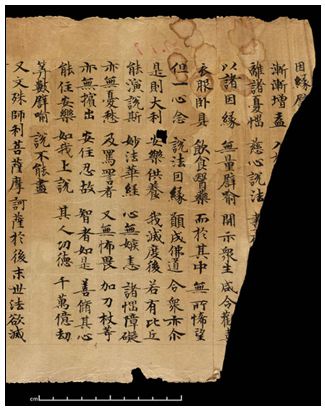 因緣
漸漸增益 入
離諸憂惱 慈心說法
以諸因緣 無量譬喻 開示衆生 咸令歡
衣服卧具 飲食醫藥 而於其中 無所悕望
但一心念 說法因緣 願成佛道 令衆亦尒
是則大利 安樂供養 我滅度後 若有比丘
能演說斯 妙法華經 心無嫉恚 諸惱障礙
亦無憂愁 及罵詈者 又無怖畏 加刀杖等
亦無擯出 安住忍故 智者如是 善脩其心
能住安樂 如我上說 其人功德 千萬億劫
筭數譬喻 說不能盡
又文殊師利菩薩摩訶薩於後末世法欲滅
cm